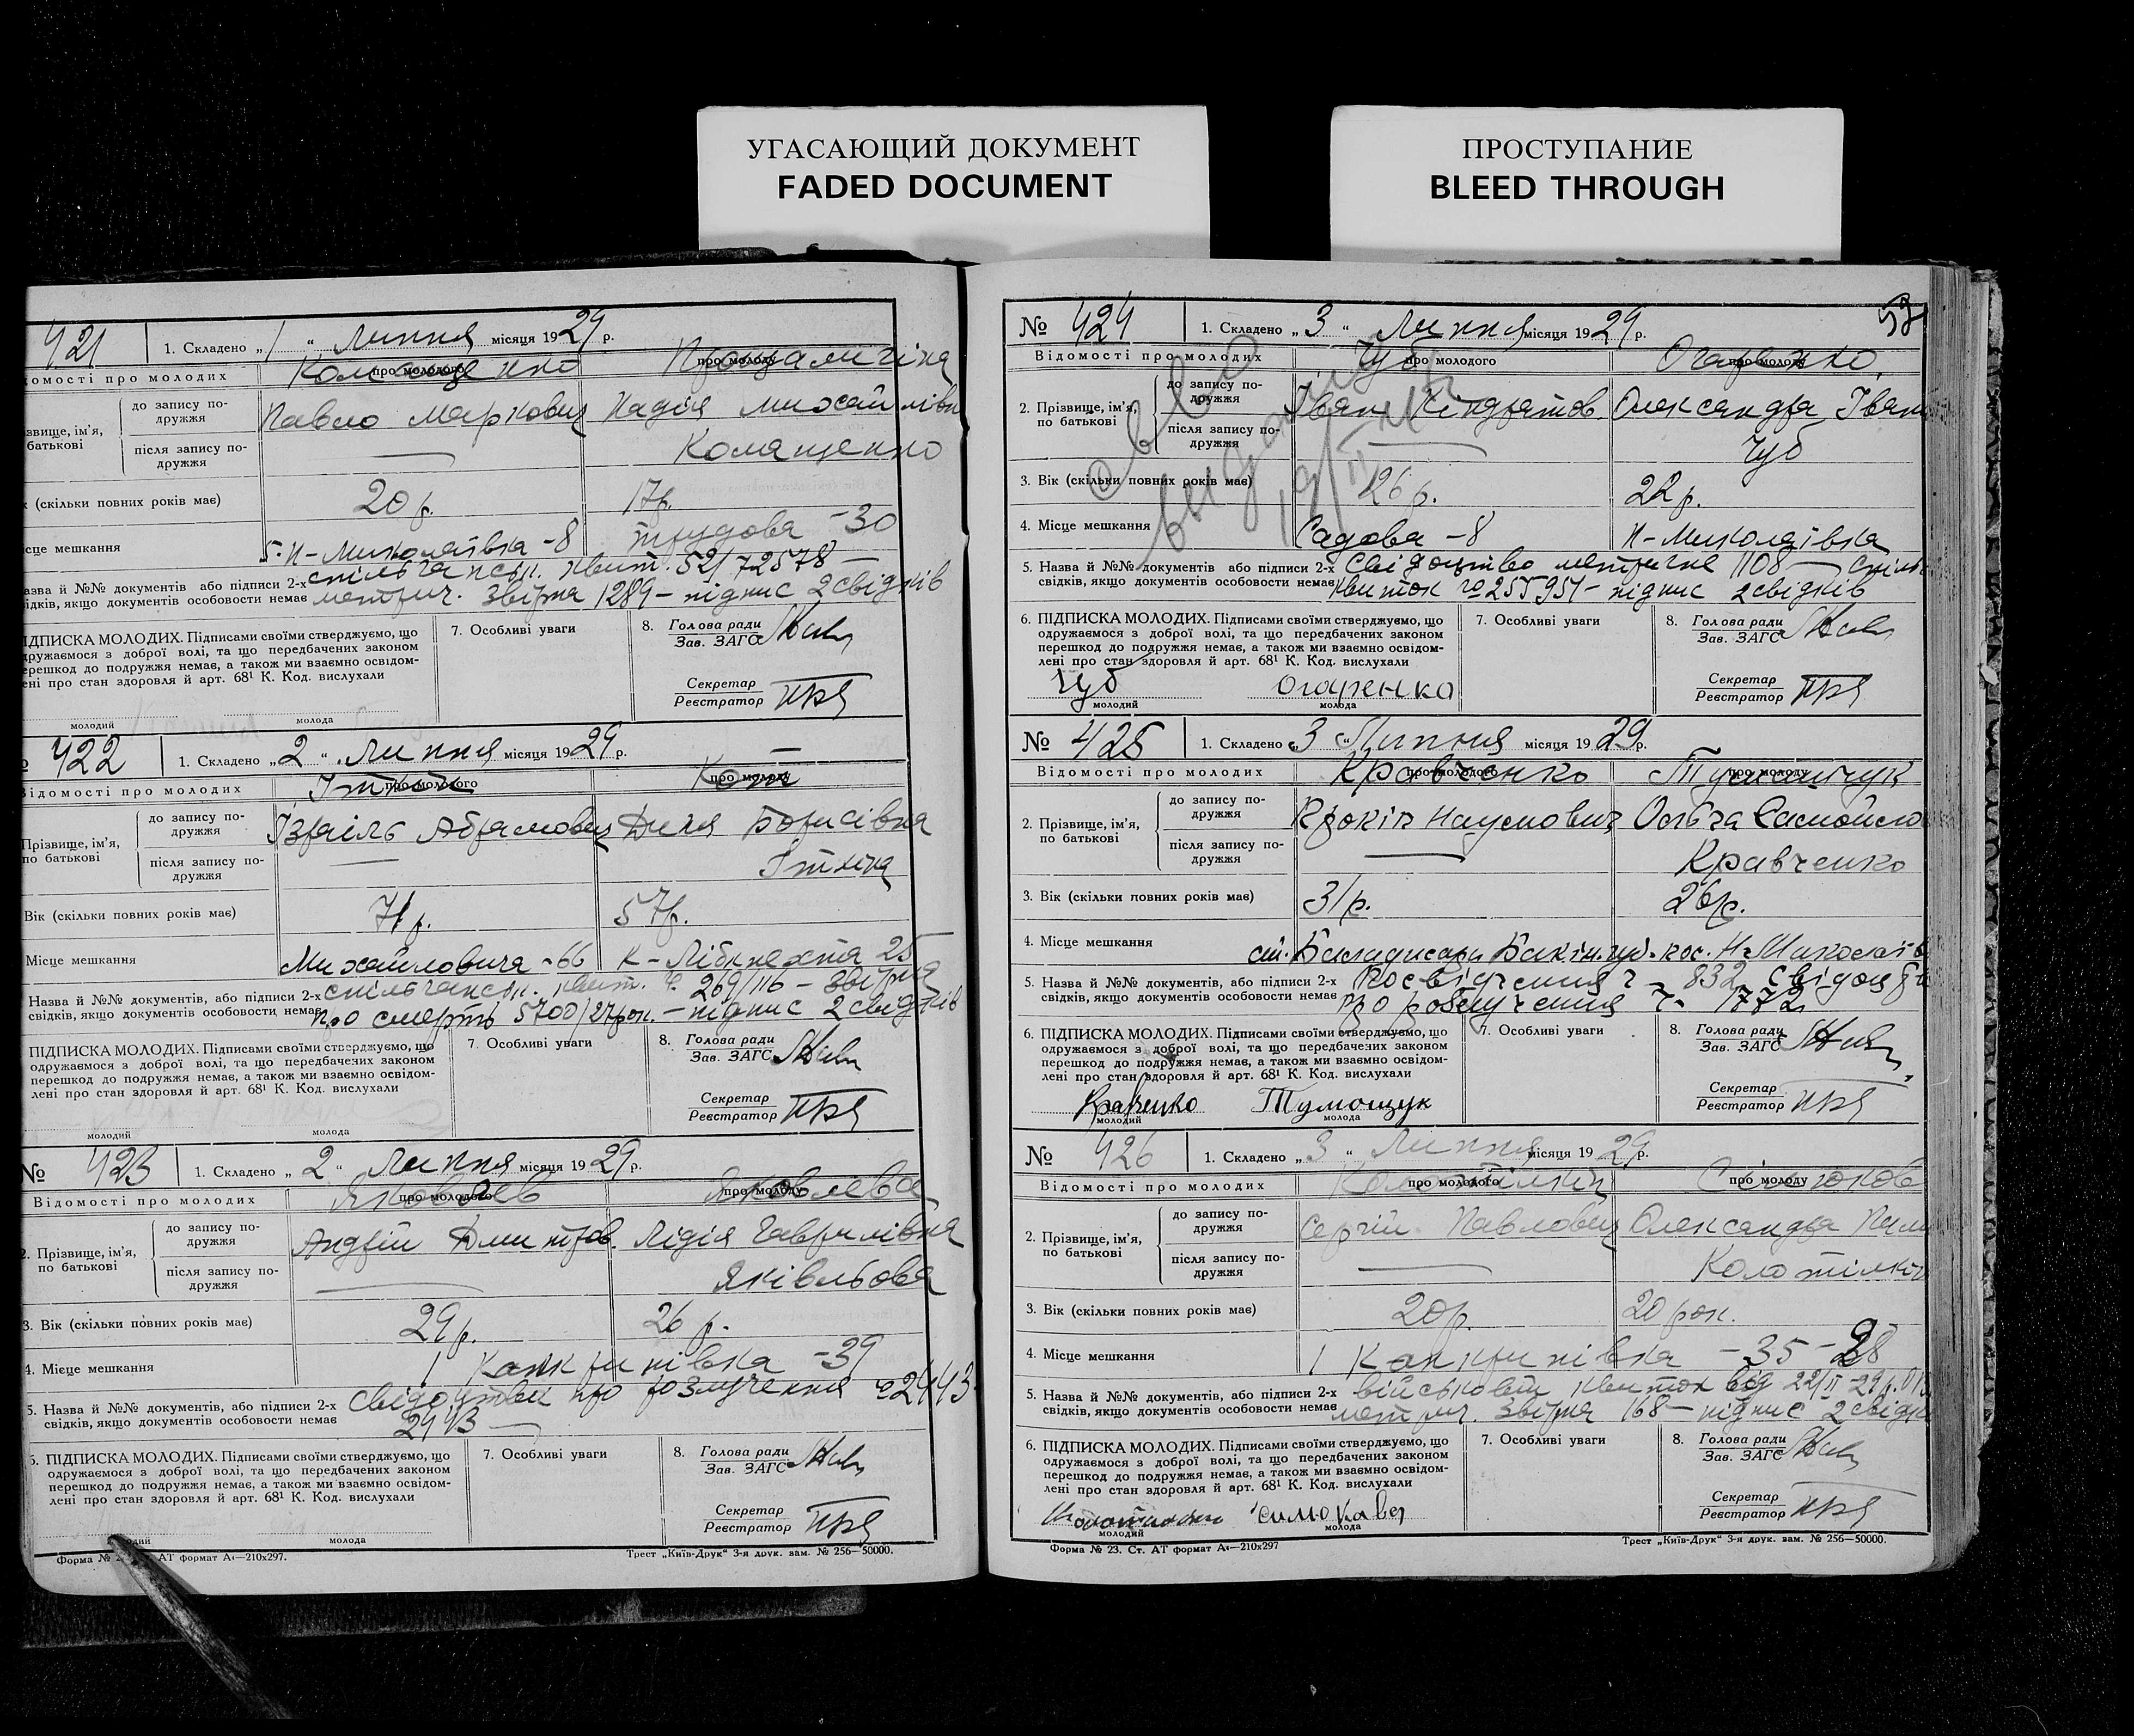 УГАСАЮЩИЙ ДОКУМЕНТ
FADED DOCUMENT
ПРОСТУПАНИЕ
BLEED THROUGH
421
1. Складено „ 1 “ Липня місяця 1929 р.
домості про молодих
про молодого
про молоду
ізвище, ім'я,
батькові
до запису по-
дружжя
Павло Маркович Надія Михайлівн
після запису по-
дружжя
— Комащенко
к (скільки повних років має)
20 р. 17р.
сце мешкання
Н-Миколаївка -8 трудова -30
азва й №№ документів або підписи 2-х
ідків, якщо документів особовости немає
квит. 52/72578 —
метрич. звірка 1289 – підпис 2 свідків
ІДПИСКА МОЛОДИХ. Підписами своїми стверджуємо, що
дружаємося з доброї волі, та що передбачених законом
ерешкод до подружжя немає, а також ми взаємно освідом-
ені про стан здоровля й арт. 68¹ К. Код. вислухали
молодий молода
7. Особливі уваги
8. Голова ради
Зав. ЗАГС
Секретар
Реєстратор
422
1. Складено „ 2 “ Липня місяця 1929 р.
Відомості про молодих
про молодого
про молоду
Прізвище, ім'я,
по батькові
до запису по-
дружжя
Ізраїль Абрамович Борисівна
після запису по-
дружжя
— Іткіна
Вік (скільки повних років має)
71 р. 57р.
Місце мешкання
Михайловича -66 К-Лібкнехта 25
Назва й №№ документів, або підписи 2-х
свідків, якщо документів особовости немає
269/116 –
про смерть 5700/27рок. – підпис 2 свідків
ПІДПИСКА МОЛОДИХ. Підписами своїми стверджуємо, що
одружаємося з доброї волі, та що передбачених законом
перешкод до подружжя немає, а також ми взаємно освідом-
лені про стан здоровля й арт. 68¹ К. Код. вислухали
молодий молода
7. Особливі уваги
8. Голова ради
Зав. ЗАГС
Секретар
Реєстратор
№ 423
1. Складено „ 2 “ Липня місяця 1929 р.
Відомості про молодих
про молодого
про молоду
Яковлев Яковлева
2. Прізвище, ім'я,
по батькові
до запису по-
дружжя
Андрій Дмитров. Лідія Гаврилівна
після запису по-
дружжя
— Яківльова
3. Вік (скільки повних років має)
29 р. 26 р.
4. Місце мешкання
1 Канкринівка -39
5. Назва й №№ документів, або підписи 2-х
свідків, якщо документів особовости немає
Свідоцтви про розлучення 2443
2443 —
6. ПІДПИСКА МОЛОДИХ. Підписами своїми стверджуємо, що
одружаємося з доброї волі, та що передбачених законом
перешкод до подружжя немає, а також ми взаємно освідом-
лені про стан здоровля й арт. 68¹ К. Код. вислухали
молода
7. Особливі уваги
8. Голова ради
Зав. ЗАГС
Секретар
Реєстратор
АТ формат А₄—210х297.
Трест „Київ-Друк“ 3-я друк. зам. № 256—50000.
№ 424
1. Складено „ 3 “ Липня місяця 1929 р.
Відомості про молодих
про молодого
про молоду
Чуб Огаренко
2. Прізвище, ім'я,
по батькові
до запису по-
дружжя
Іван Кіндратов. Олександра Іван
після запису по-
дружжя
— Чуб
3. Вік (скільки повних років має)
26 р. 22 р.
4. Місце мешкання
Садова -8 Н-Миколаївка
5. Назва й №№ документів або підписи 2-х
свідків, якщо документів особовости немає
Свідоцтво метричне 1108 —
квиток № 255951 – підпис 2 свідків
6. ПІДПИСКА МОЛОДИХ. Підписами своїми стверджуємо, що
одружаємося з доброї волі, та що передбачених законом
перешкод до подружжя немає, а також ми взаємно освідом-
лені про стан здоровля й арт. 68¹ К. Код. вислухали
Чуб Огаренко
молодий молода
7. Особливі уваги
8. Голова ради
Зав. ЗАГС
Секретар
Реєстратор
№ 425
1. Складено „ 3 “ Липня місяця 1929 р.
Відомості про молодих
про молодого
про молоду
Кравченко
2. Прізвище, ім'я,
по батькові
до запису по-
дружжя
Наумович Ольга Самойло
після запису по-
дружжя
— Кравченко
3. Вік (скільки повних років має)
31р. 26р.
4. Місце мешкання
5. Назва й №№ документів, або підписи 2-х
свідків, якщо документів особовости немає
Посвідчення 832
про розлучення 1772
6. ПІДПИСКА МОЛОДИХ. Підписами своїми стверджуємо, що
одружаємося з доброї волі, та що передбачених законом
перешкод до подружжя немає, а також ми взаємно освідом-
лені про стан здоровля й арт. 68¹ К. Код. вислухали
Кравченко Тумощук
молодий молода
7. Особливі уваги
8. Голова ради
Зав. ЗАГС
Секретар
Реєстратор
№ 426
1. Складено „ 3 “ Липня місяця 1929 р.
Відомості про молодих
про молодого
про молоду
2. Прізвище, ім'я,
по батькові
до запису по-
дружжя
Сергій Павлович Олександра
після запису по-
дружжя
—
3. Вік (скільки повних років має)
20р. 20 рок.
4. Місце мешкання
1 Канкринівка -35 -28
5. Назва й №№ документів, або підписи 2-х
свідків, якщо документів особовости немає
військовий квиток від 22/II-29 р.
метрич. звірка 168 – підпис 2
6. ПІДПИСКА МОЛОДИХ. Підписами своїми стверджуємо, що
одружаємося з доброї волі, та що передбачених законом
перешкод до подружжя немає, а також ми взаємно освідом-
лені про стан здоровля й арт. 68¹ К. Код. вислухали
молодий молода
7. Особливі уваги
8. Голова ради
Зав. ЗАГС
Секретар
Реєстратор
Форма № 23. Ст. АТ формат А₄—210х297
Трест „Київ-Друк“ 3-я друк. зам. № 256—50000.